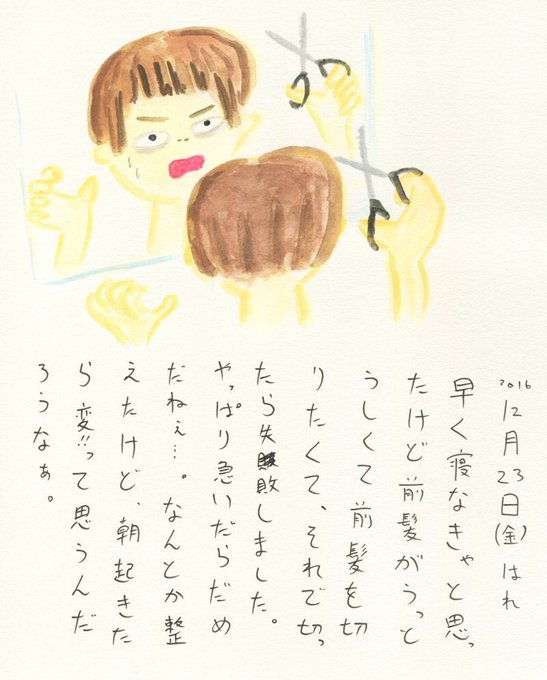 2016 12月23日(金) はれ
早く寝なきゃと思っ
たけど前髪がうっと
うしくて前髪を切
りたくて、それで切っ
たら失敗しました。
やっぱり急いだらだめ
だねぇ…。なんとか整
えたけど、朝起きた
ら変!!って思うんだ
ろうなぁ。